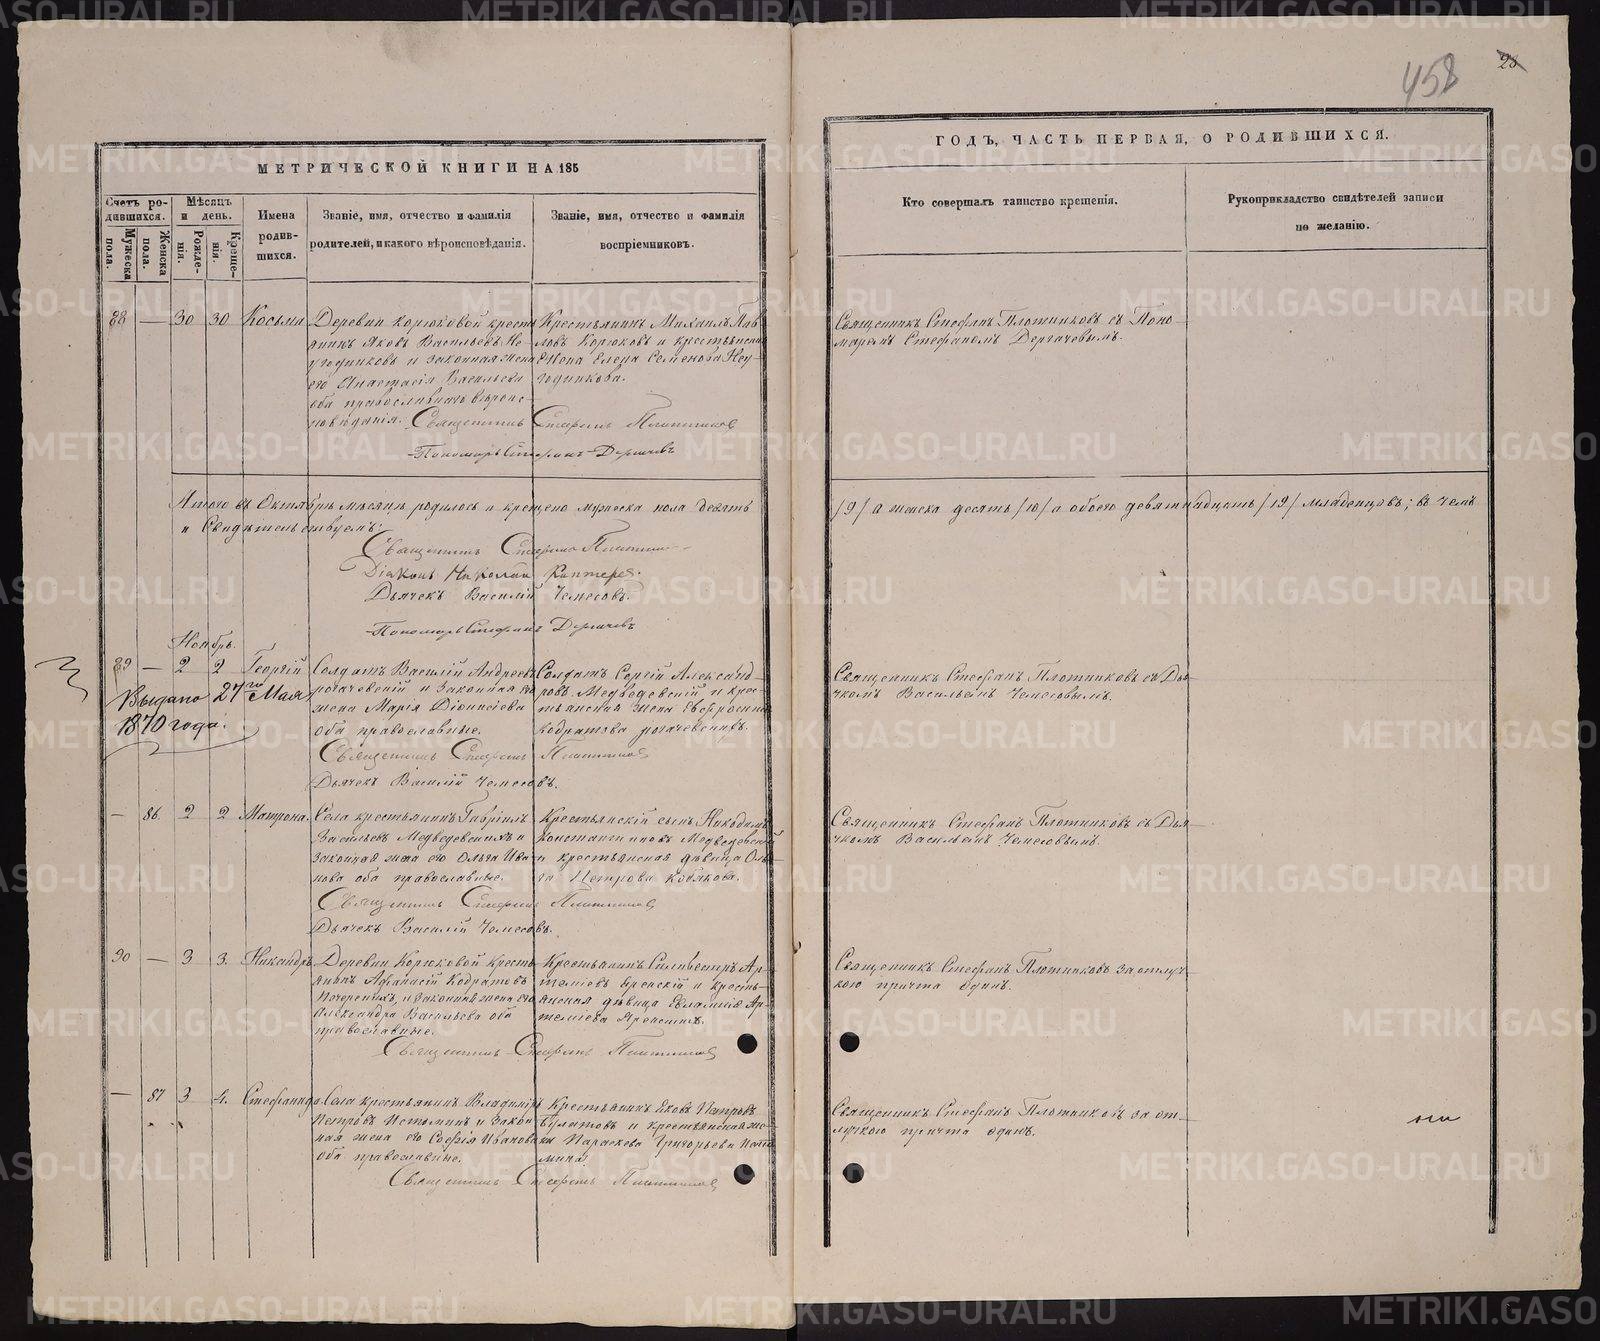 458
28
МЕТРИЧЕСКОЙ КНИГИ НА 185
ГОДЪ, ЧАСТЬ ПЕРВАЯ, О РОДИВШИХСЯ.
Счетъ ро-
дившихся.
Мужеска пола.
Женска пола.
Мѣсяцъ
и день.
Рожде-
нія.
Креще-
нія.
Имена
родив-
шихся.
Званіе, имя, отчество и фамилія
родителей, и какого вѣроисповѣданія.
Званіе, имя, отчество и фамилія
воспріемниковъ.
Кто совершалъ таинство крещенія.
Рукоприкладство свидѣтелей записи
по желанію.
88 — 30 30 Косьма
Деревни Корюковой кресть
янинъ Яковъ Васильевъ Не-
угодниковъ и законная жена
его Анастасія Васильева
оба православнаго вѣроис-
повѣданія. Священникъ Стефанъ Плотниковъ
Пономарь Стефанъ Дергачевъ
Крестьянинъ Михаилъ Пав
ловъ Корюковъ и крестьянская
жена Елена Семенова Неу-
годникова.
Священникъ Стефанъ Плотниковъ съ Поно-
маремъ Стефаномъ Дергачевымъ.
Итого въ Октябрѣ мѣсяцѣ родилось и крещено мужеска пола девять
/9/ а женска десять /10/ а обоего девятнадцать /19/ младенцовъ; въ чемъ
и Свидѣтельствуемъ:
Священникъ Стефанъ Плотниковъ
Діаконъ Николай
Дьячекъ Василій Чемесовъ.
Пономарь Стефанъ Дергачевъ
Ноябрь.
89 — 2 2 Георгій
Выдано 27го Мая
1870 года.
Солдатъ Василій Андреевъ
рогачевскій и законная его
жена Марія Діонисіева
оба православные.
Священникъ Стефанъ Плотниковъ
Дьячекъ Василій Чемесовъ.
Солдатъ Сергій Александ-
ровъ Медведевскій и крес-
тьянская жена Евфросинія
кодратова рогачевскихъ.
Священникъ Стефанъ Плотниковъ съ Дья-
чкомъ Васильемъ Чемесовымъ.
— 86 2 2 Матрона.
Села крестьянинъ Гавріилъ
Васильевъ Медведевскихъ и
законная жена его Ольга Ива-
нова оба православные.
Священникъ Стефанъ Плотниковъ
Дьячекъ Василій Чемесовъ.
Крестьянскій сынъ Никодимъ
константиновъ Медведевскій
и крестьянская дѣвица Оль-
га Петрова Кобякова.
Священникъ Стефанъ Плотниковъ съ Дья-
чкомъ Васильемъ Чемесовымъ.
90 — 3 3. Никандръ
Деревни Корюковой кресть-
янинъ Афанасій Кодратовъ
Печерскихъ, и законная жена его
Александра Васильева оба
православные.
Священникъ Стефанъ Плотниковъ
Крестьянинъ Силивестръ Ар-
теміевъ и кресть-
янская дѣвица Евлампія Ар-
теміева
Священникъ Стефанъ Плотниковъ за отлуч-
кою причта одинъ.
— 87 3 4. Стефанида
Села крестьянинъ Владиміръ
Петровъ Истоминъ и закон-
ная жена его Софія Иванова
оба православные.
Священникъ Стефанъ Плотниковъ
Крестьянинъ Яковъ Петровъ
Булатовъ и крестьянская же-
на Параскева Григорьева Исто-
мина.
Священникъ Стефанъ Плотниковъ за от-
лучкою причта одинъ.
METRIKI.GASO-URAL.RU